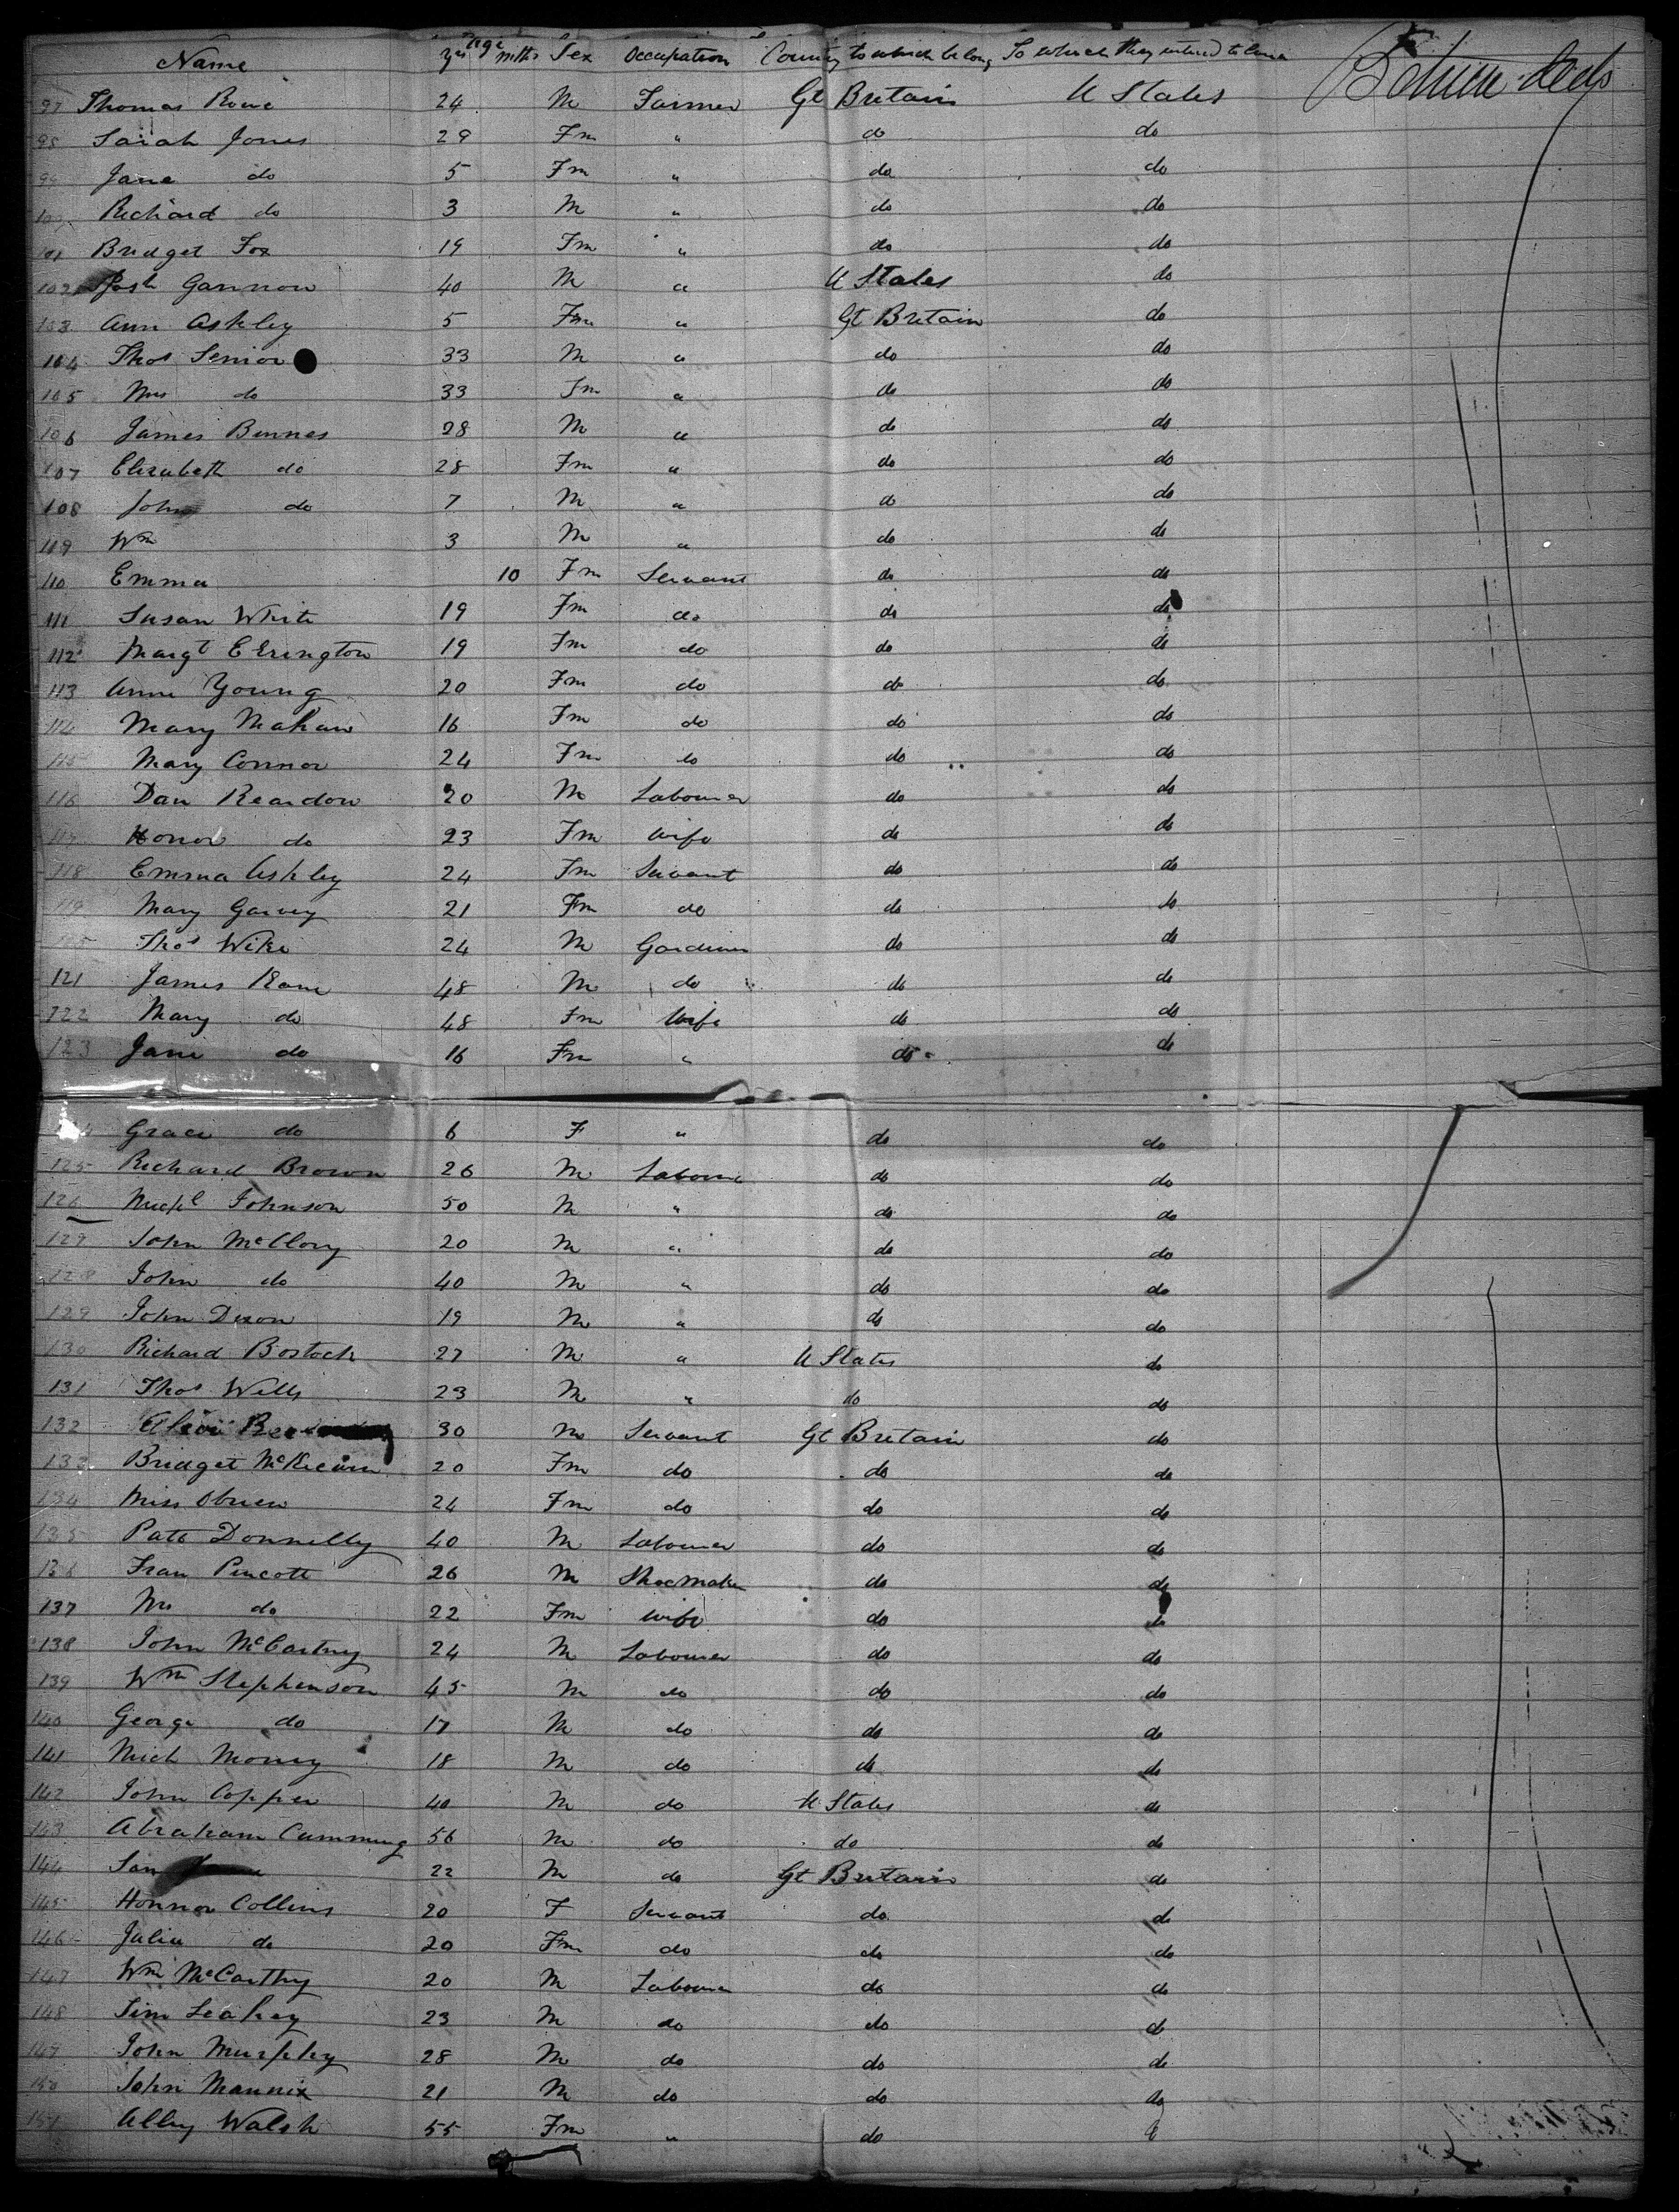 Name Age Yrs Mths Sex Occupation Country to which belong To which they intend to
Between decks
97 Thomas Rowe 24 M Farmer Gt Britain U States
98 Sarah Jones 29 Fm " do do
99 Jane do 5 Fm " do do
100 Richard do 3 M " do do
101 Bridget Fox 19 Fm " do do
102 Gannon 40 M " U States do
103 Ann Ashley 5 Fm " Gt Britain do
104 Thos Senior 33 M " do do
105 Mrs do 33 Fm " do do
106 James Binnes 28 M " do do
107 Elizabeth do 28 Fm " do do
108 John do 7 M " do do
119 Wm 3 M " do do
110 Emma 10 Fm Servant do do
111 Susan White 19 Fm do do do
112 Margt Errington 19 Fm do do do
113 Anne Young 20 Fm do do do
114 Mary Mahan 16 Fm do do do
115 Mary Connor 24 Fm do do do
116 Dan Reardon 20 M Labourer do do
117 Honor do 23 Fm Wife do do
118 Emma Ashley 24 Fm Servant do do
119 Mary Garvey 21 Fm do do do
Thos Wike 24 M Gardiner do do
121 James Rowe 48 M do do do
122 Mary do 48 Fm Wife do do
123 Jane do 16 Fm " do do
Grace do 6 F " do do
125 Richard Brown 26 M Labourer do do
126 Johnson 50 M " do do
127 John McClory 20 M " do do
128 John do 40 M " do do
129 John Dixon 19 M " do do
130 Richard Bostock 27 M " U States do
131 Thos Wells 23 M " do do
132 30 M Servant Gt Britain do
133 Bridget 20 Fm do do do
134 Miss Obrien 24 Fm do do do
135 Patt Donnelly 40 M Labourer do do
136 Fran Pincott 26 M Shoemaker do do
137 Mrs do 22 Fm Wife do do
138 John McCartney 24 M Labourer do do
139 Wm Stephenson 45 M do do do
140 George do 17 M do do do
141 Mich 18 M do do do
142 John Copper 40 M do U States do
143 Abraham Cumming 56 M do do do
144 22 M do Gt Britain do
145 Honnor Collins 20 F Servant do do
146 Julia do 20 Fm do do do
147 Wm McCarthy 20 M Labourer do do
148 Jim Leahey 23 M do do do
149 John Murphy 28 M do do do
150 John Mannix 21 M do do do
151 Alley Walsh 55 Fm " do do